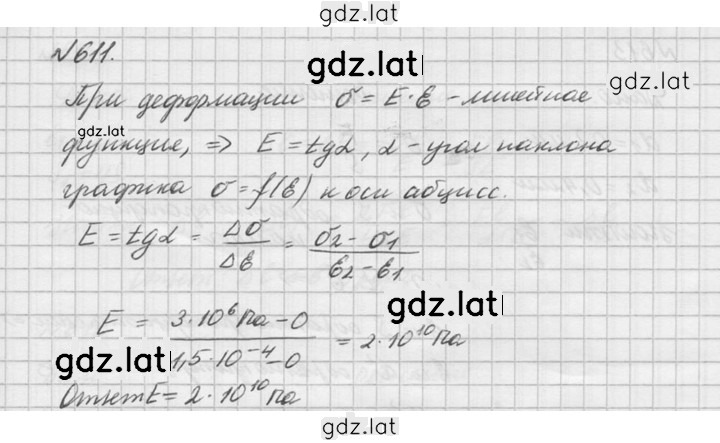 gdz.lat
№611.
gdz.lat
При деформации σ = E·ε - линейное
gdz.lat
функция, ⇒ E = tgα, α - угол наклона
графика σ = f(ε) к оси абцисс.
E = tgα = Δσ/Δε = σ2 - σ1/ε2 - ε1
gdz.lat
E = 3·10⁶ Па - 0/1,5·10⁻⁴ - 0 = 2·10¹⁰ Па
gdz.lat
Ответ E = 2·10¹⁰ Па
gdz.lat